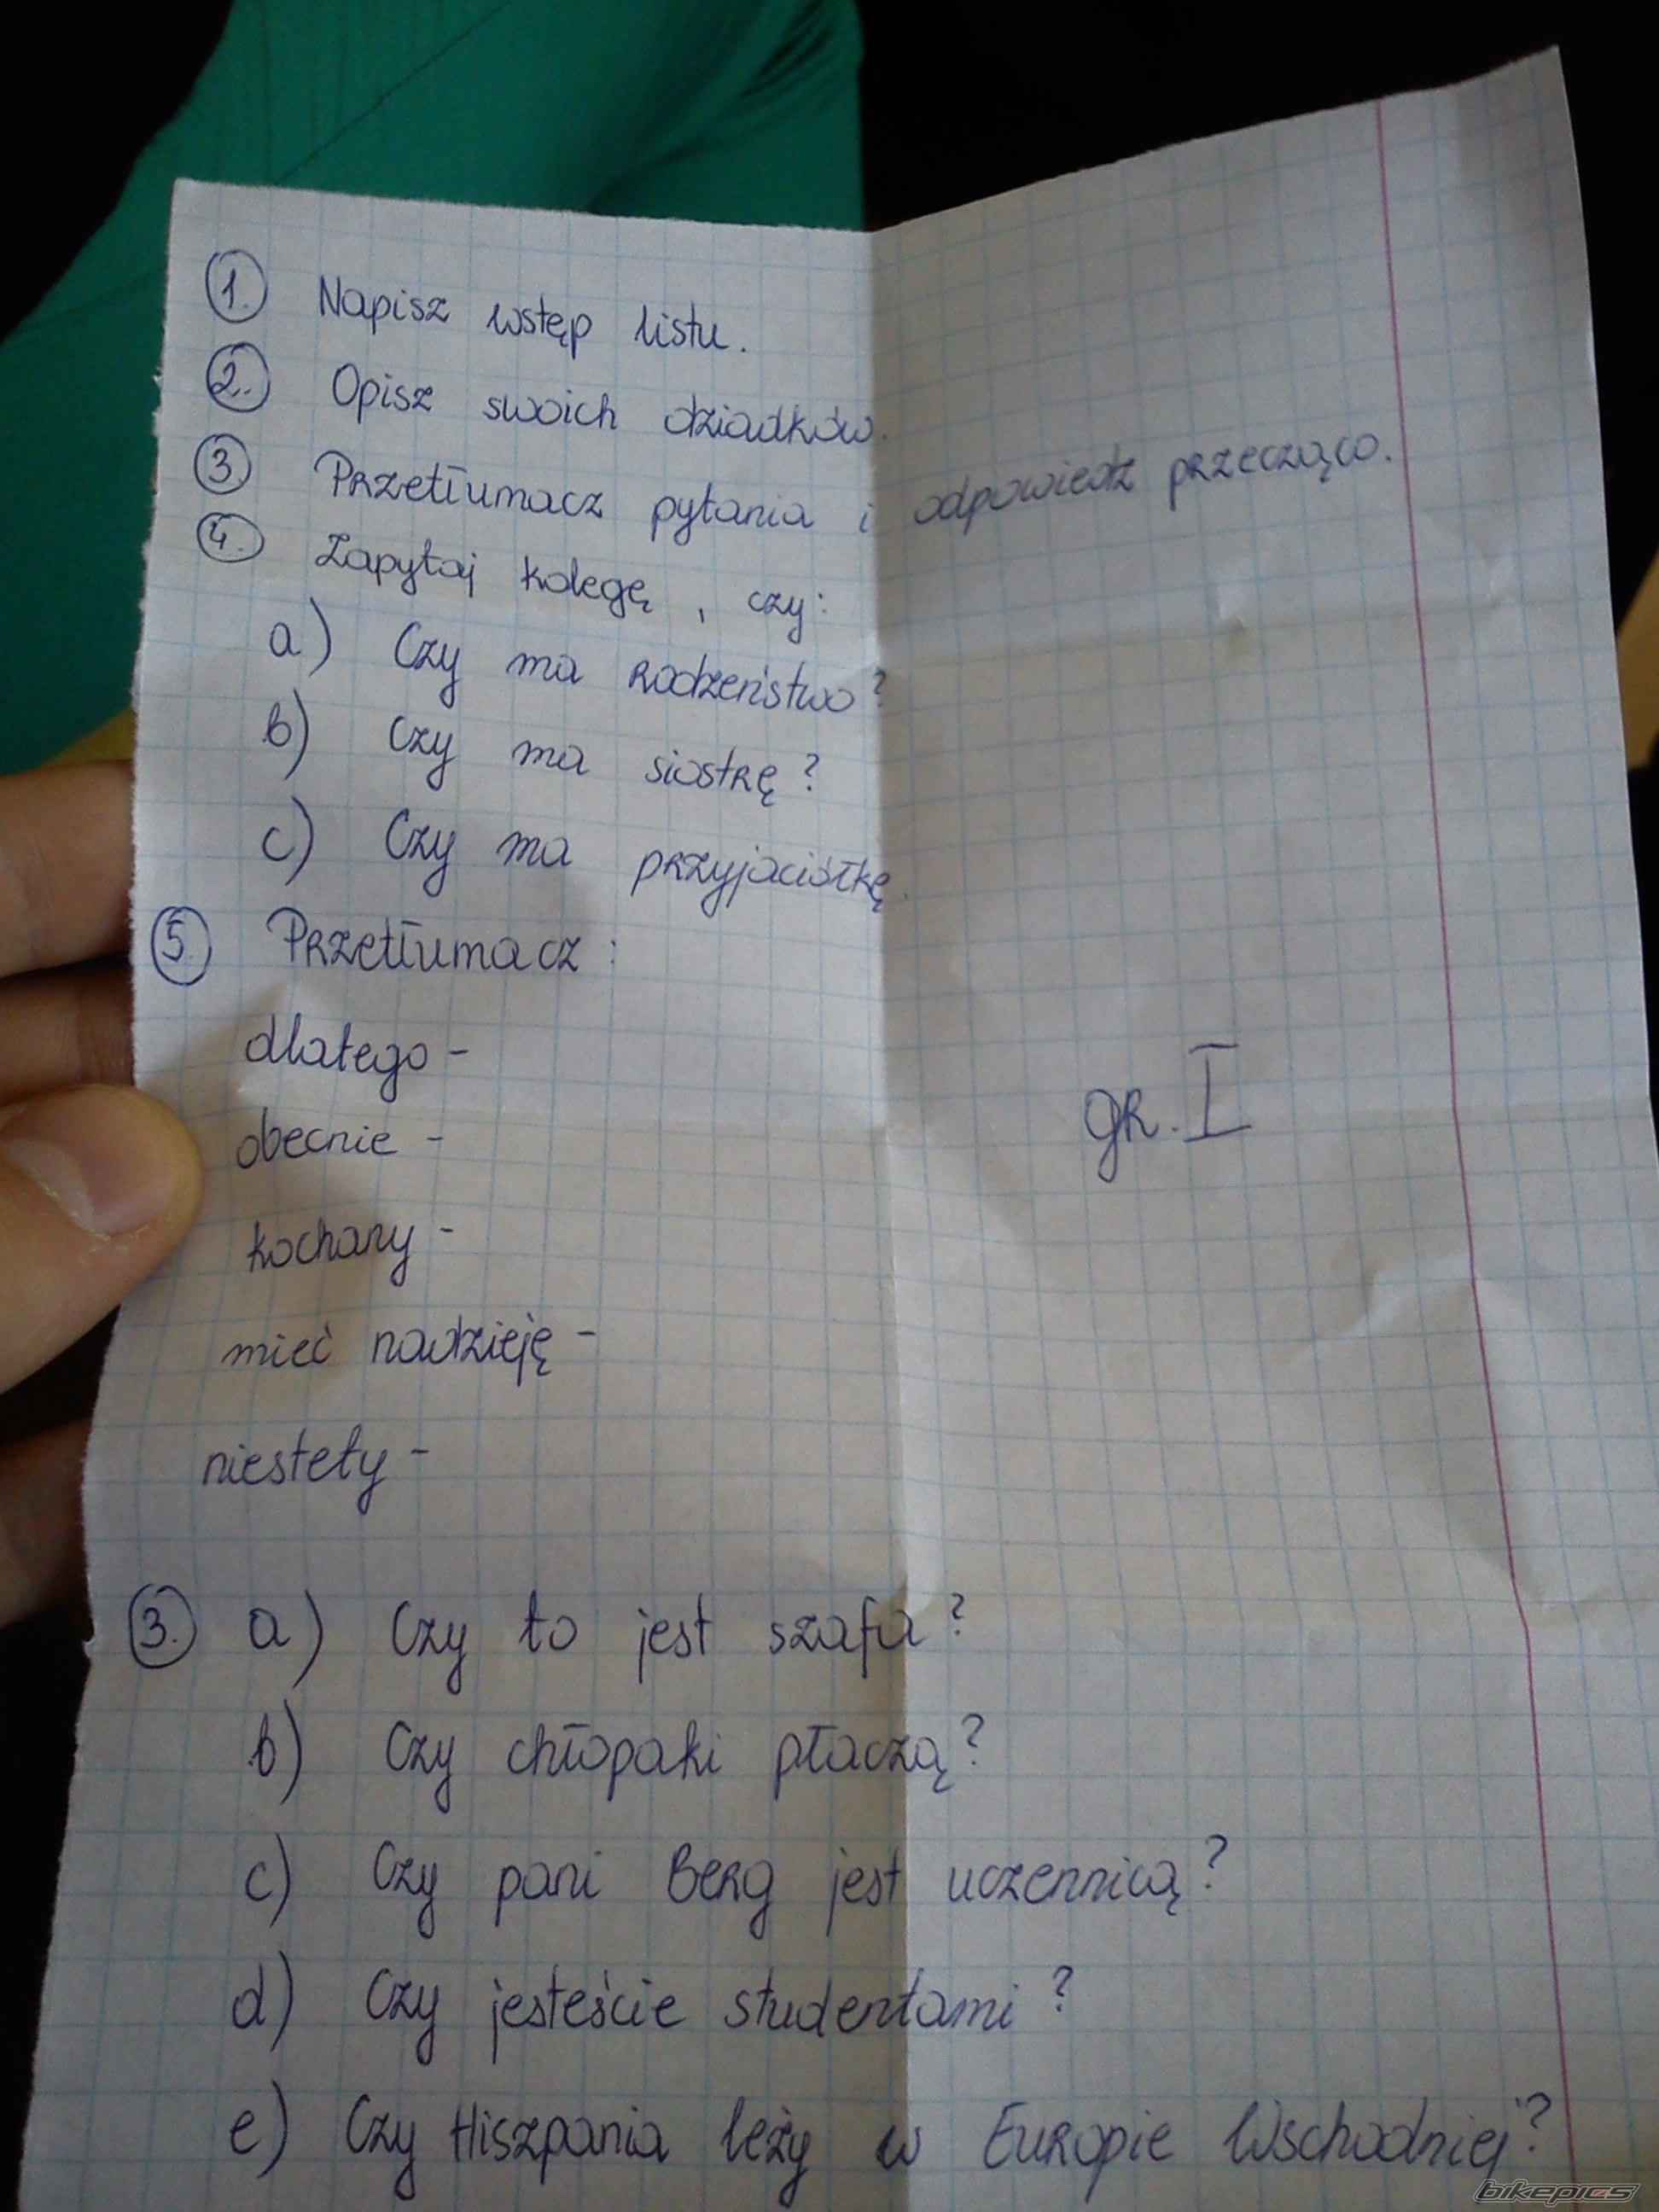 1. Napisz wstęp listu.
2. Opisz swoich dziadków.
3. Przetłumacz pytania i odpowiedz przecząco.
4. Zapytaj kolegę, czy:
a) Czy ma rodzeństwo?
b) Czy ma siostrę?
c) Czy ma przyjaciółkę.
5. Przetłumacz:
dlatego -
obecnie -
gr. I
kochany -
mieć nadzieję -
niestety -
3. a) Czy to jest szafa?
b) Czy chłopaki płaczą?
c) Czy pani Berg jest uczennicą?
d) Czy jesteście studentami?
e) Czy Hiszpania leży w Europie Wschodniej?
bikepics